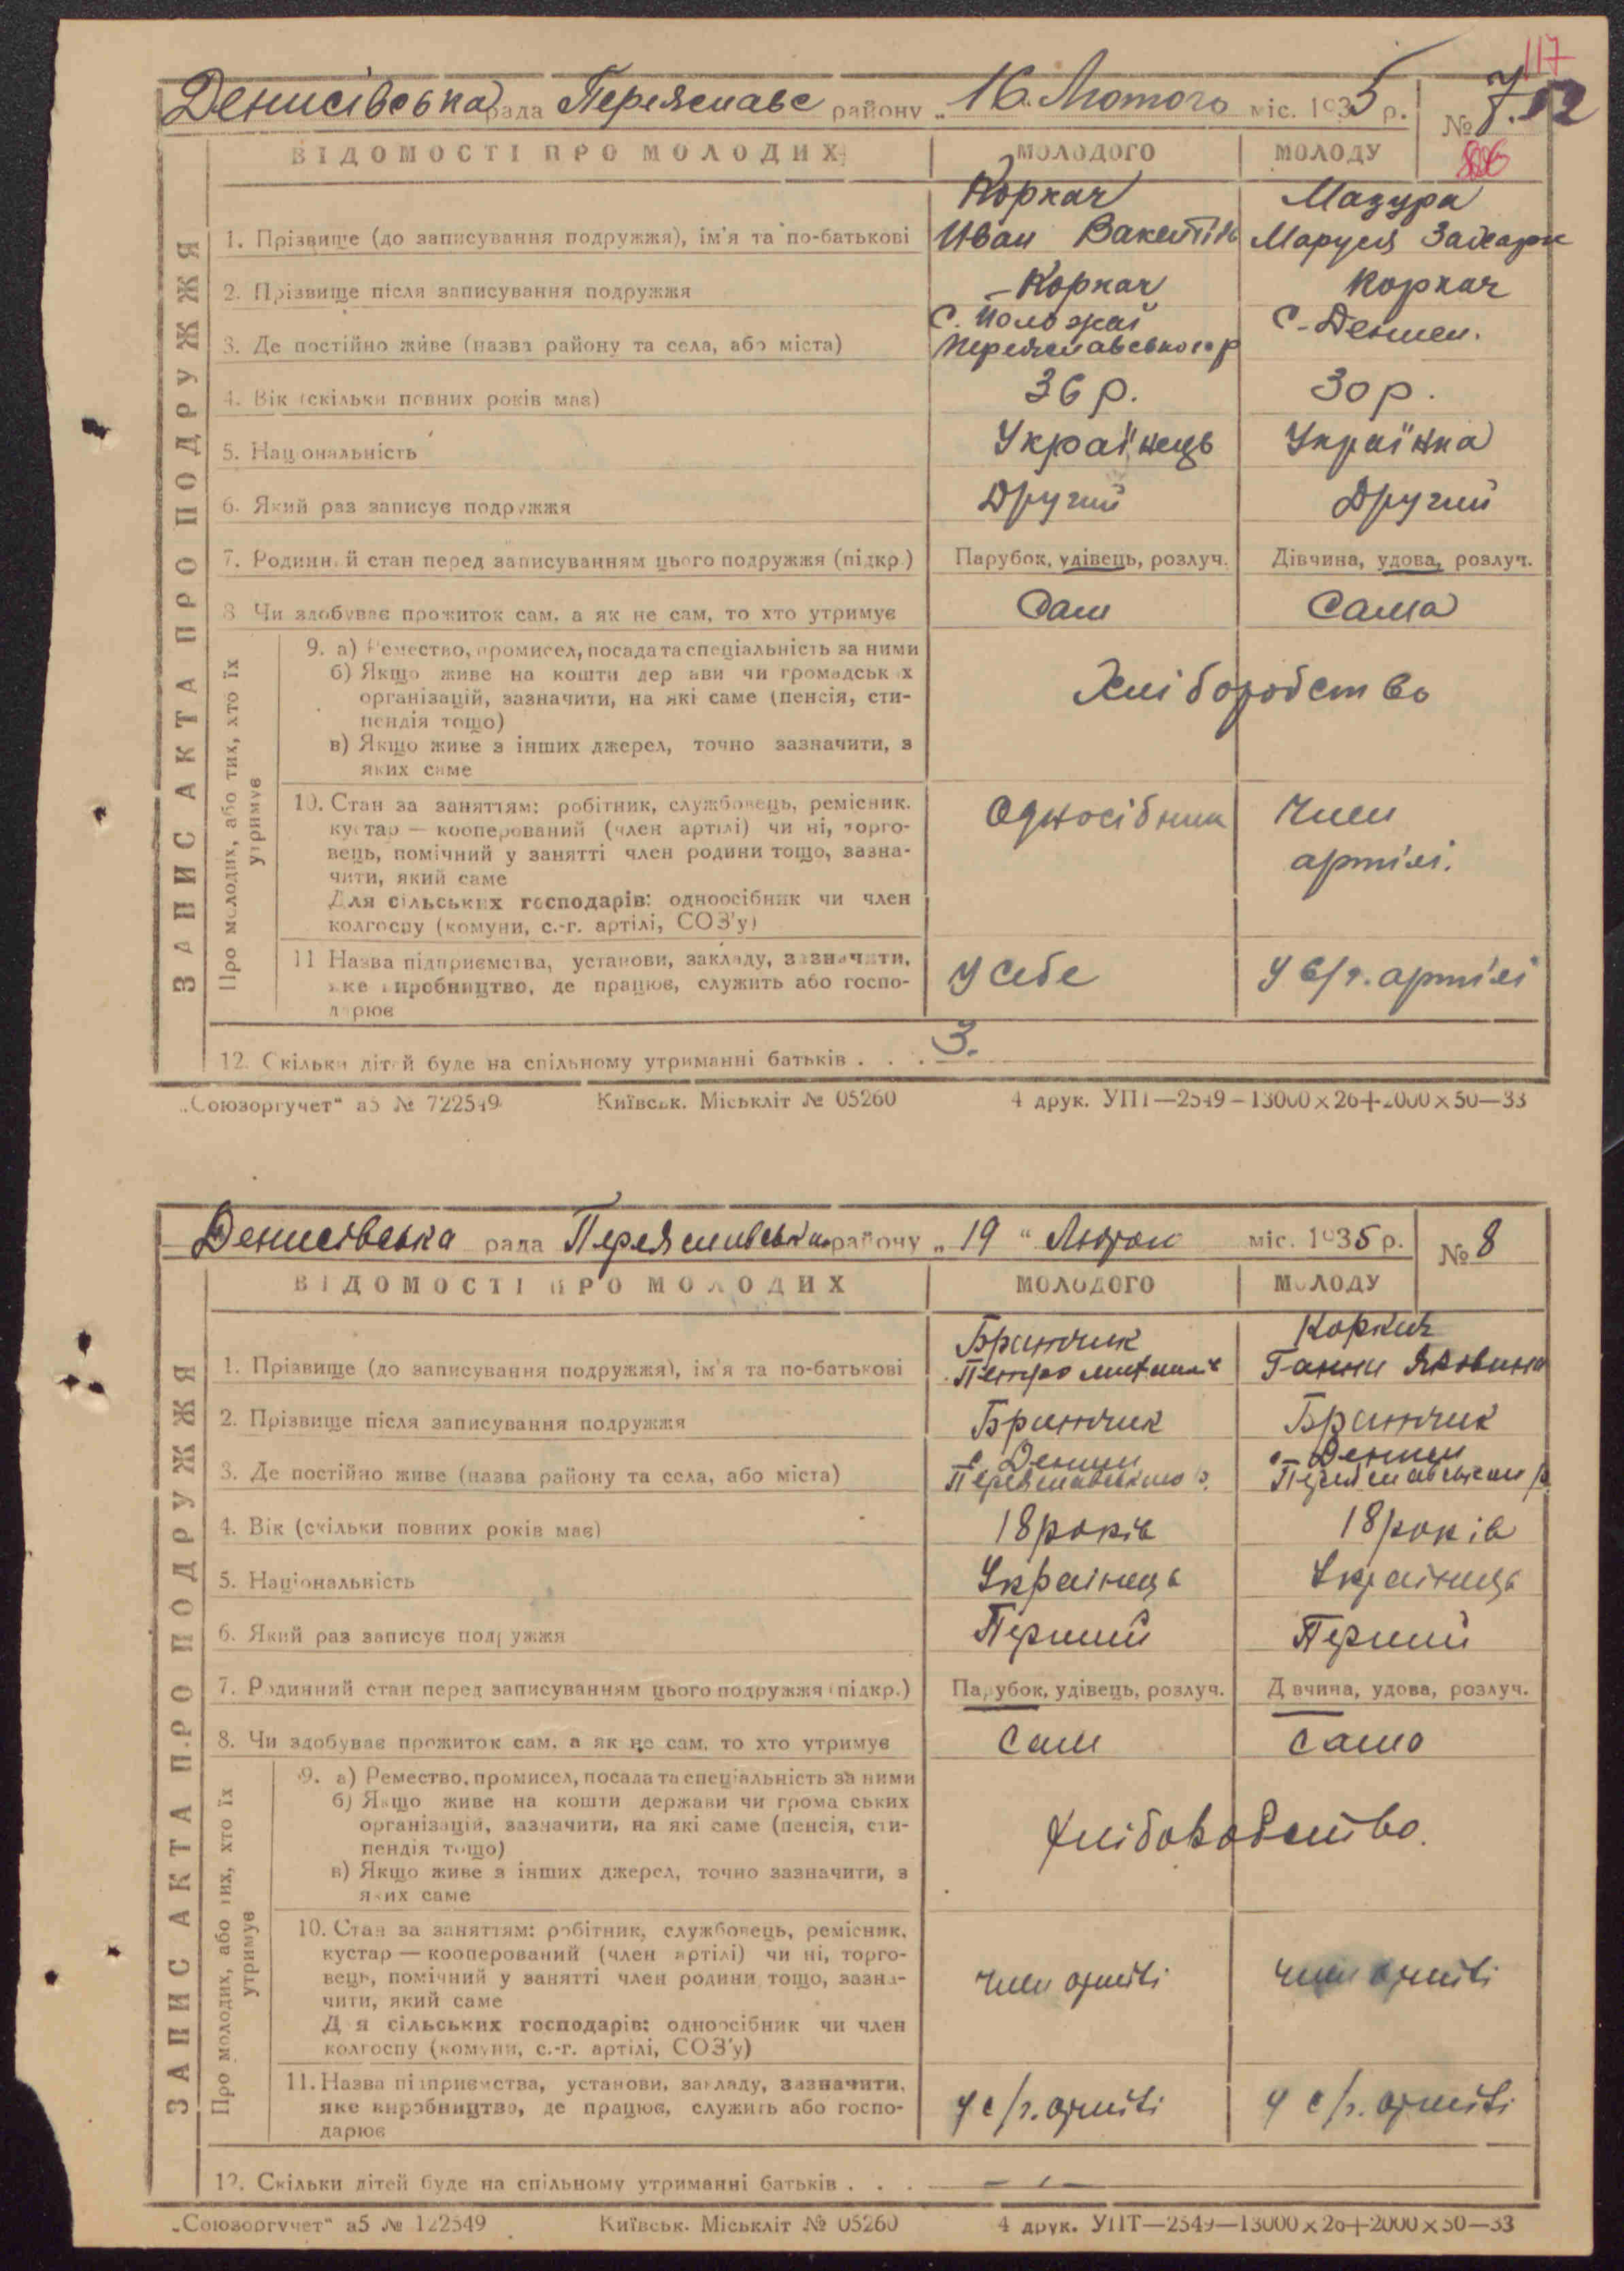 117
Денисівська рада Переяславс району „16 Лютого міс. 1935 р. № 7.
ВІДОМОСТІ ПРО МОЛОДИХ МОЛОДОГО МОЛОДУ
ЗАПИС АКТА ПРО ПОДРУЖЖЯ
Коркач Мазура
1. Прізвище (до записування подружжя), ім'я та по-батькові Иван Маруся Захарк
2. Прізвище після записування подружжя Коркач Коркач
С. Положаї С. Дениси.
3. Де постійно живе (назва району та села, або міста) Переяславського р
4. Вік (скільки повних років має) 36 р. 30 р.
5. Національність Українець Українка
6. Який раз записує подружжя Другий Другий
7. Родинний стан перед записуванням цього подружжя (підкр.) Парубок, удівець, розлуч. Дівчина, удова, розлуч.
8 Чи здобуває прожиток сам, а як не сам, то хто утримує Сам Сама
Про молодих, або тих, хто їх утримує
9. а) Ремество, промисел, посада та спеціальність за ними
б) Якщо живе на кошти держави чи громадських
організацій, зазначити, на які саме (пенсія, сти-
пендія тощо)
Хліборобство
в) Якщо живе з інших джерел, точно зазначити, з
яких саме
10. Стан за заняттям: робітник, службовець, ремісник, Односібник Член
кустар — кооперований (член артілі) чи ні, торго-
вець, помічний у занятті член родини тощо, зазна- артілі.
чити, який саме
Для сільських господарів: одноосібник чи член
колгоспу (комуни, с.-г. артілі, СОЗ'у)
11 Назва підприємства, установи, закладу, зазначити, У себе У с/г. артілі
яке виробництво, де працює, служить або госпо-
дарює
12. Скільки дітей буде на спільному утриманні батьків . . . 3.
„Союзоргучет“ а5 № 722549 Київськ. Міськліт № 05260 4 друк. УПТ—2549—13000×26+2000×50—33
Денисівська рада Переяславська району „19“ Лютого міс. 1935 р. № 8
ВІДОМОСТІ ПРО МОЛОДИХ МОЛОДОГО МОЛОДУ
ЗАПИС АКТА ПРО ПОДРУЖЖЯ
Бранчик Коркач
1. Прізвище (до записування подружжя), ім'я та по-батькові Петро Ганна Яківна
2. Прізвище після записування подружжя Бранчик Бранчик
с. Дениси с. Дениси
3. Де постійно живе (назва району та села, або міста) Переяславського р. Переяславського р
4. Вік (скільки повних років має) 18 років 18 років
5. Національність Українець Українець
6. Який раз записує подружжя Перший Перший
7. Родинний стан перед записуванням цього подружжя (підкр.) Парубок, удівець, розлуч. Дівчина, удова, розлуч.
8. Чи здобуває прожиток сам, а як не сам, то хто утримує Сам Сама
Про молодих, або тих, хто їх утримує
9. а) Ремество, промисел, посада та спеціальність за ними
б) Якщо живе на кошти держави чи громадських
організацій, зазначити, на які саме (пенсія, сти-
пендія тощо)
Хліборобство.
в) Якщо живе з інших джерел, точно зазначити, з
яких саме
10. Стан за заняттям: робітник, службовець, ремісник,
кустар — кооперований (член артілі) чи ні, торго-
вець, помічний у занятті член родини тощо, зазна- член артілі член артілі
чити, який саме
Для сільських господарів: одноосібник чи член
колгоспу (комуни, с.-г. артілі, СОЗ'у)
11. Назва підприємства, установи, закладу, зазначити,
яке виробництво, де працює, служить або госпо- у с/г. артілі у с/г. артілі
дарює
12. Скільки дітей буде на спільному утриманні батьків . . . —
„Союзоргучет“ а5 № 122549 Київськ. Міськліт № 05260 4 друк. УПТ—2549—13000×26+2000×50—33